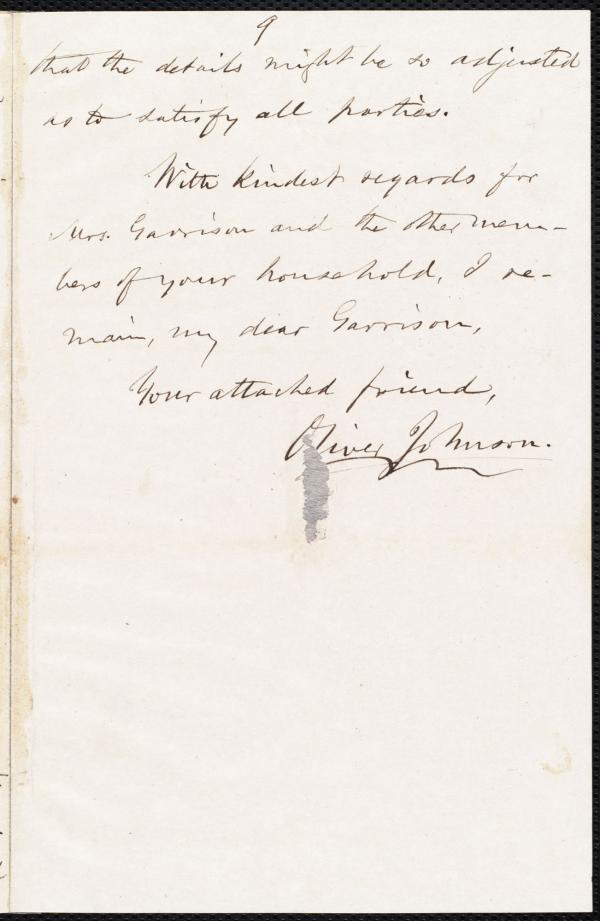 9
that the details might be so adjusted
as to satisfy all parties.
With kindest regards for
Mrs. Garrison and the other mem-
bers of your household, I re-
main, my dear Garrison,
Your attached friend,
Oliver Johnson.